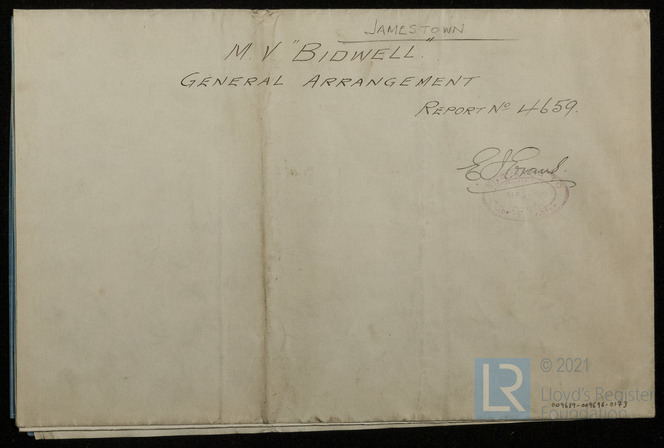 JAMESTOWN
M.V "BIDWELL."
GENERAL ARRANGEMENT
REPORT Nº 4659.
E J Evans.
LR
© 2021
Lloyd's Register
Foundation
009689-009696-0173